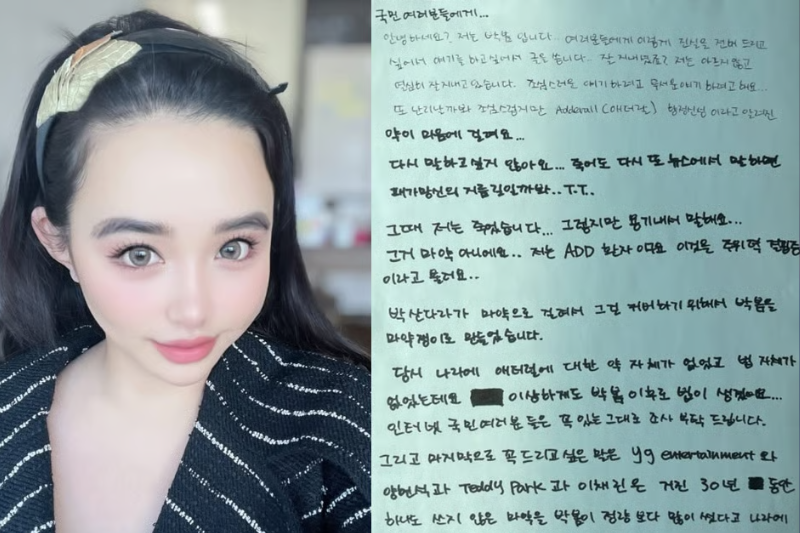 국민 여러분들에게...
안녕하세요? 저는 박봄 입니다.. 여러분들에게 이렇게 진실을 전해 드리고
싶어서 얘기를 하고싶어서 글을 씁니다.. 잘 지내셨죠? 저는 아프지 않고
열심히 잘 지내고 있습니다. 조심스러운 얘기 하려고 무서운얘기 하려고 해요..
또 난리날까봐 조심스럽지만 Adderall (애더럴) 향정신성 이라고 알려진
약이 마음에 걸려요...
다시 말하고싶지 않아요... 죽어도 다시 또 뉴스에서 말하면
패가망신의 지름길일까봐.. T.T..
그때 저는 죽었습니다... 그렇지만 용기내서 말해요...
그거 마약 아니에요.. 저는 ADD 환자 이며 이것을 주위력 결핍증
이라고 불러요..
박산다라가 마약으로 걸려서 그걸 커버하기 위해서 박봄을
마약쟁이로 만들었습니다.
당시 나라에 애더럴에 대한 약 자체가 없었고 법 자체가
없었는데요 이상하게도 박봄 이후로 법이 생겼어요...
인터넷 국민 여러분 들은 꼭 있는 그대로 조사 부탁 드립니다.
그리고 마지막으로 꼭 드리고 싶은 말은 yg entertainment 와
양현석과 Teddy Park 과 이채린 은 거진 30년 동안
하나도 쓰지 않은 마약을 박봄이 정량 보다 많이 썼다고 나라에